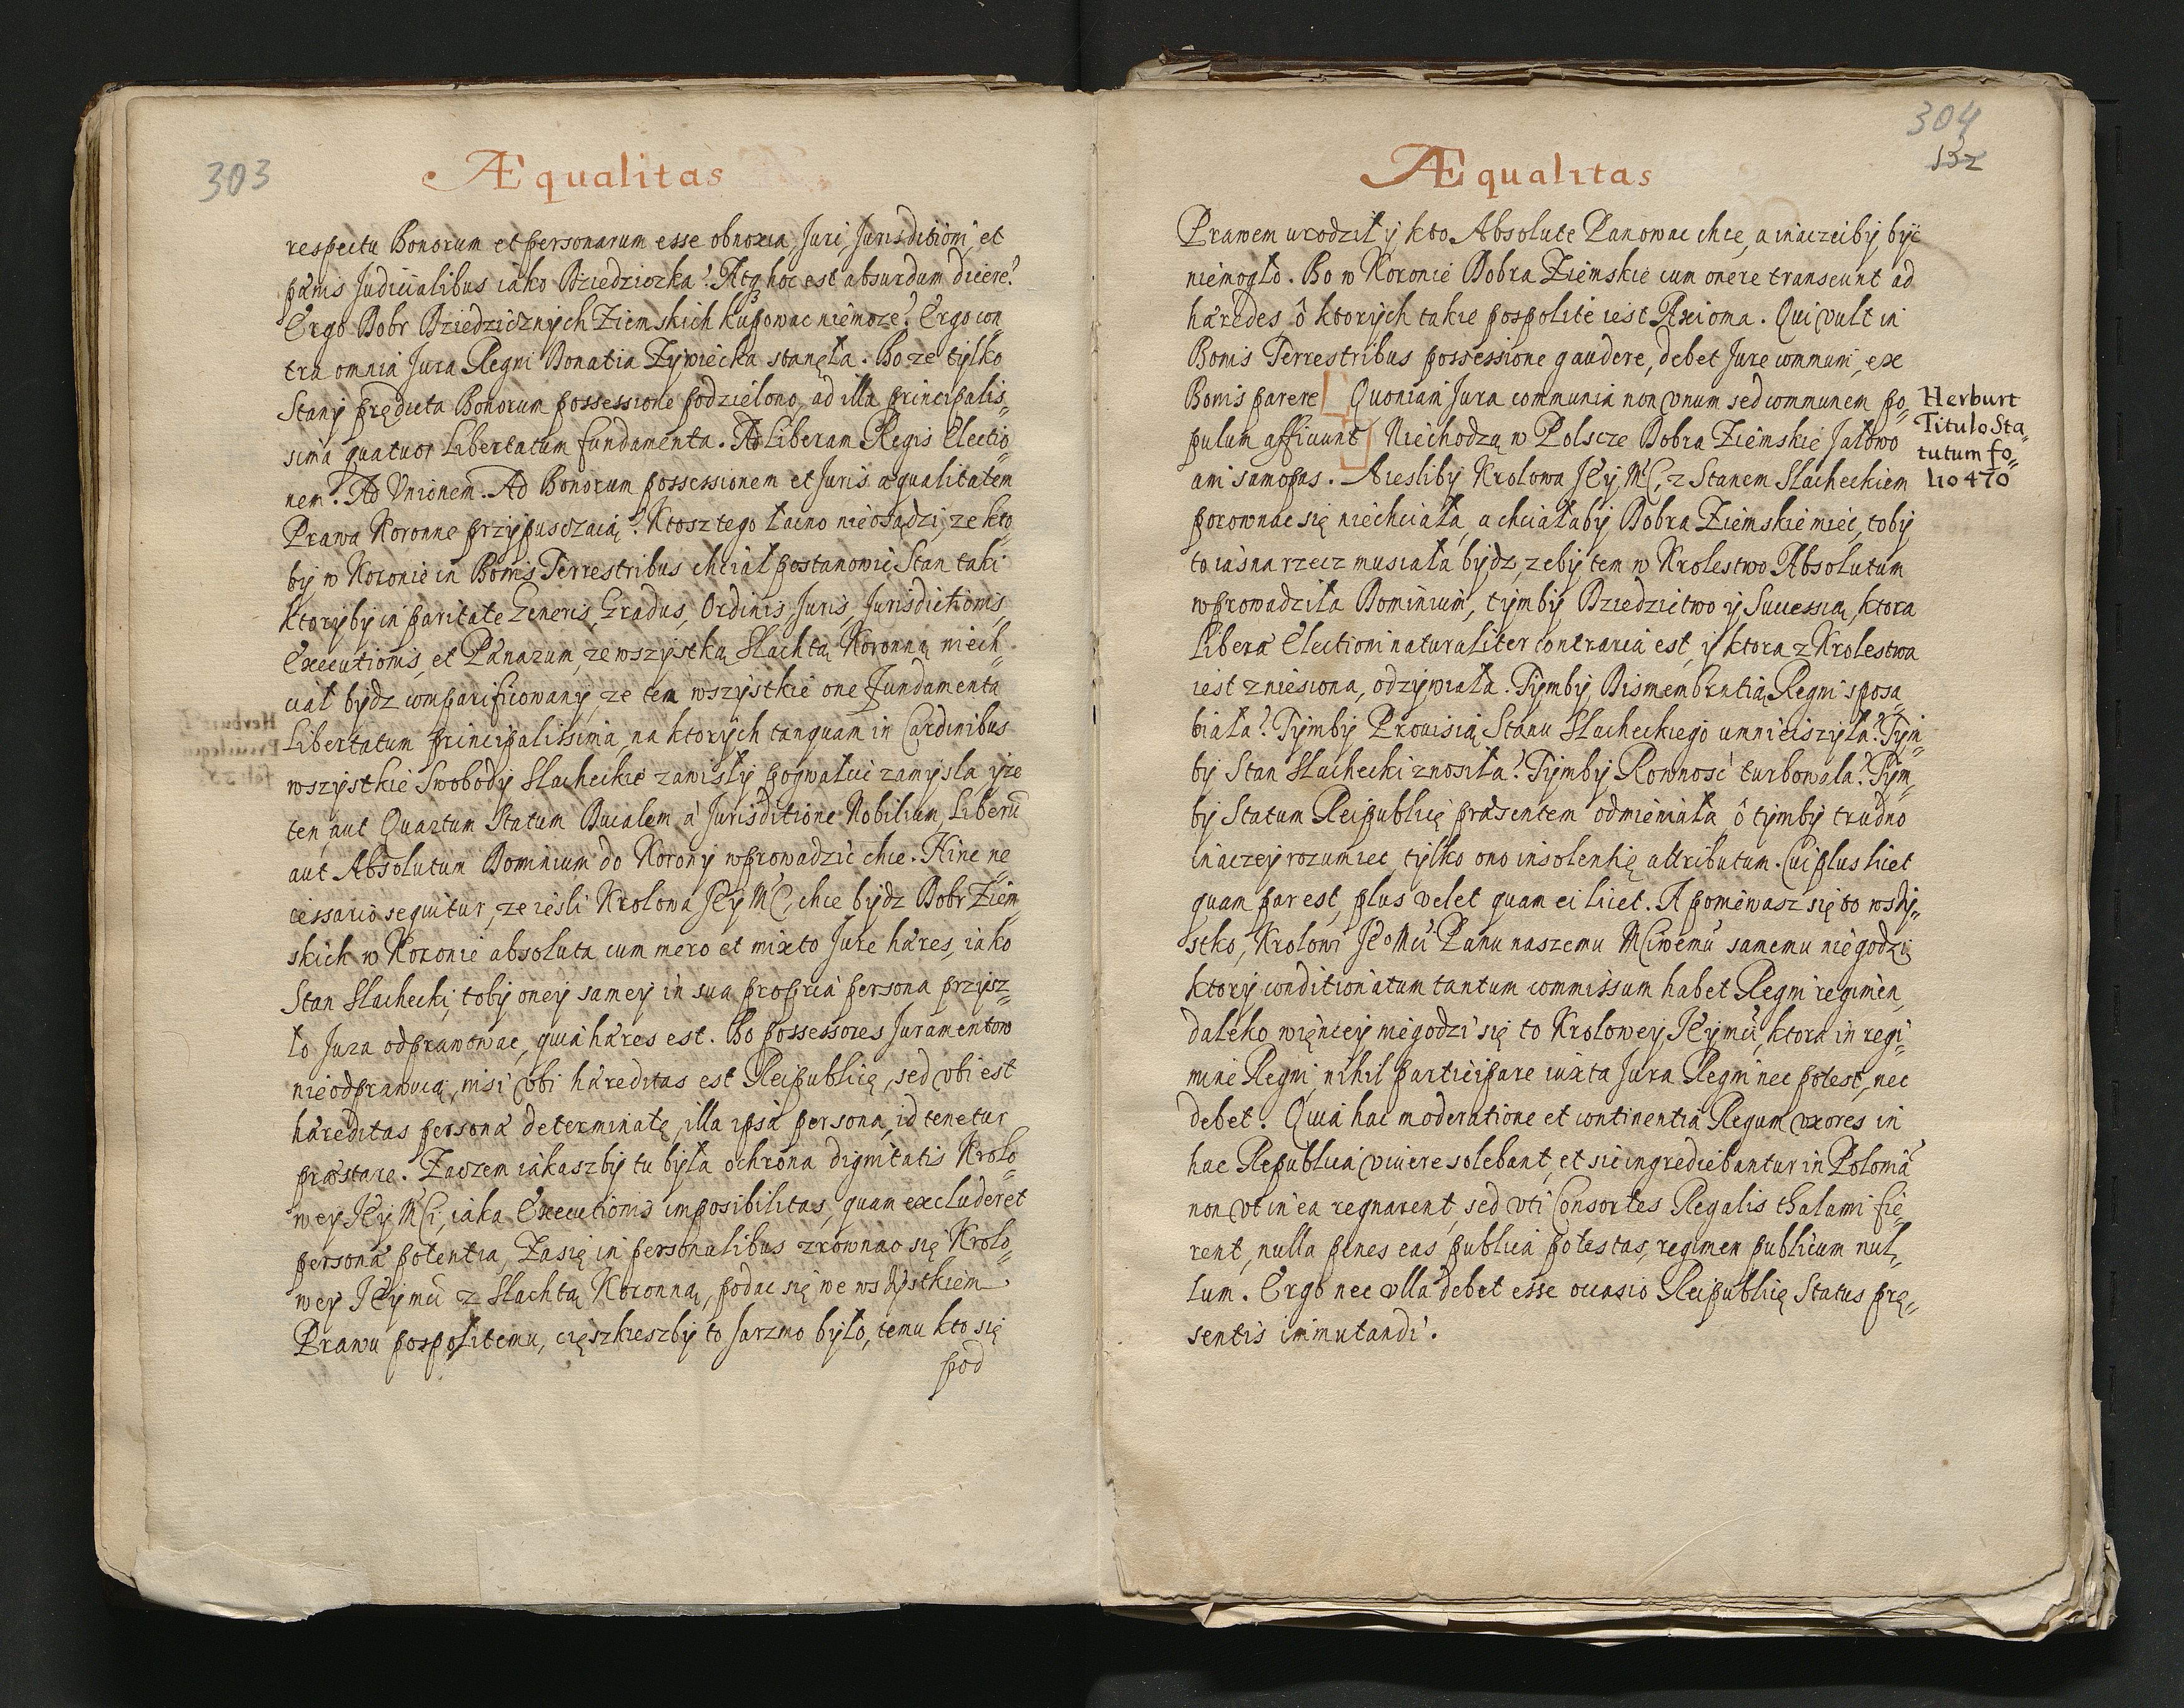 303
Æqualitas
respectu Bonorum et personarum esse obnoxia, Juri, Jurisditioni, et
pænis Judicialibus iako Dziedziczka? Atq hoc est absurdum dicere?
Ergo Dobr Dziedzicznych Ziemskich kupowac niemoze? Ergo con„
tra omnia Jura Regni Donatia Zywiecka stanęła. Bo ze tylko
Stany prędicta Bonorum possessione podzielono, ad illa principalis„
sima quatuor Libertatum fundamenta. Ad Liberam Regis Electio„
nem. Ad Vnionem. Ad Bonorum possessionem et Juris æqualitatem
Prawa Koronne przypusczaią? Ktosz tego łacno nieosądzi, ze kto„
by w Koronie in Bonis Terrestribus chciał postanowic Stan taki
ktoryby in paritate Generis, Gradus, Ordinis, Juris, Jurisdictionis,
Executionis, et Pænarum, ze wszystką Slachtą Koronną niech„
ciał bydz comparificowany, ze ten wszystkie one Fundamenta
Libertatum principalissima, na ktorych tanquam in Cardinibus
wszystkie Swobody Slacheckie zawisły pogwałcic zamysla, yze
ten, aut Quartum Statum Ducalem à Jurisditione Nobilium, Liberū
aut Absolutum Dominium do Korony wprowadzic chce. Hinc ne„
cessario sequitur, ze iesli Krolowa JEy MC, chce bydz Dobr Ziem„
skich w Koronie absoluta cum mero et mixto Jure hæres, iako
Stan Slachecki, toby oney samey in sua propria persona przysz„
ło Jura odprawowac, quia hæres est. Bo possessores Juramentow
nieodprawuią, nisi vbi hæreditas est Reipublicę, sed vbi est
hæreditas personæ determinatę, illa ipsa persona, id tenetur
præstare. Zaczem iakaszby tu była ochrona dignitatis Krolo„
wey JEy MCi, iaka Executionis imposibilitas, quam excluderet
personæ potentia, Zasię in personalibus zrownac się Krolo„
wey JEymci z Slachtą Koronną, podac się we wszystkiem
Prawu pospolitemu, cięszkieszby to Jarzmo było, temu kto się
pod
304
152
Æqualitas
Prawem urodził y kto Absolute Panowac chce, a inaczeiby byc
niemogło. Bo w Koronie Dobra Ziemskie cum onere transeunt ad
hæredes, ô ktorych takie pospolite iest Axioma. Qui vult in
Bonis Terrestribus possessione gaudere, debet Jure communi, ex
Bonis parere Quoniam Jura communia non vnum sed communem po„
pulum afficiunt Niechodzą w Polscze Dobra Ziemskie Jałowo
ani samopas. A iesliby Krolowa JEy MC, z Stanem Slacheckiem
porownac się niechciała, a chciałaby Dobra Ziemskie miec, toby
to iasna rzecz musiała bydz, zeby tem w Krolestwo Absolutum
wprowadziła Dominium, tymby Dziedzictwo y Successią, ktora
Liberæ Electioni naturaliter contraria est, y ktora z Krolestwa
iest zniesiona, odzywiała. Tymby Dismembratią Regni sposa„
biała? Tymby Prouisią Stanu Slacheckiego umnieiszyła? Tym„
by Stan Slachecki znosiła? Tymby Rownosc turbowala? Tym„
by Statum Reipublicę præsentem odmieniała, ô tymby trudno
inaczey rozumiec, tylko ono insolentię attributum. Cui plus licet
quam par est, plus velet quam ei licet. A poniewasz się to wszy„
stko, Krolowi JeoMci Panu naszemu MCiwemu samemu niegodzi
ktory conditionatum tantum commissum habet Regni regimen,
daleko więncey niegodzi się to Krolowey JEymci, ktora in regi„
mine Regni, nihil participare iuxta Jura Regni nec potest, nec
debet. Quia hac moderatione et continentia Regum vxores in
hac Republica viuere solebant, et sic ingrediebantur in Poloniā
non vt in ea regnarent, sed vti Consortes Regalis thalami fie„
rent, nulla penes eas publica potestas, regimen publicum nul„
lum. Ergo nec vlla debet esse occasio Reipublicę Status prę„
sentis immutandi.
Herburt
Titulo Sta„
tutum fo„
lio 470